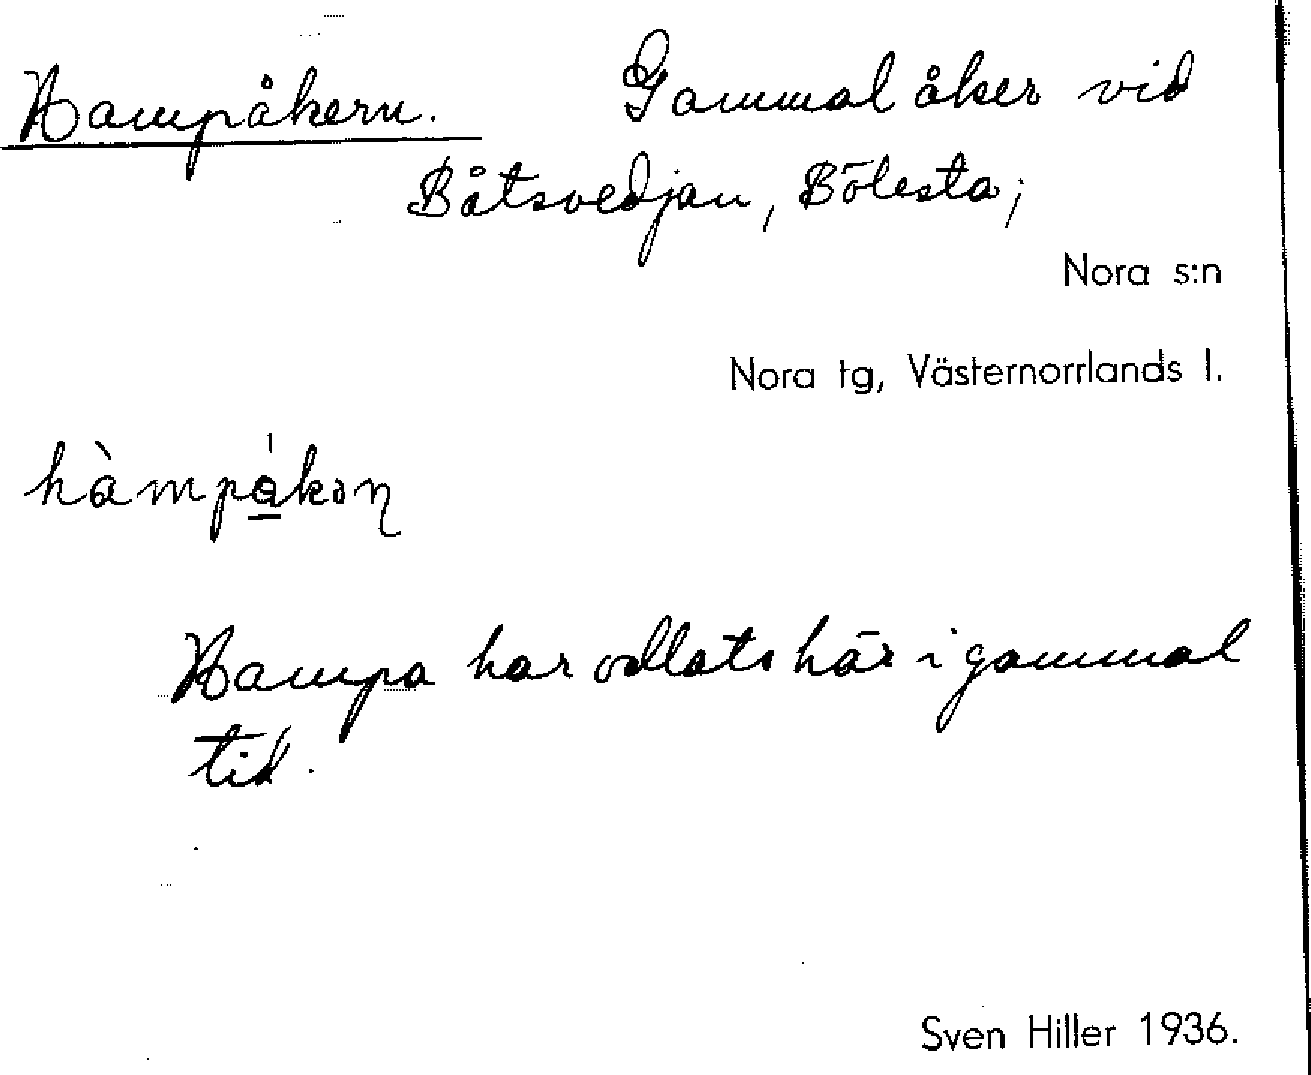 Hampåkern. Gammal åker vid
Båtsvedjan, Bölesta;
Nora s:n
Nora tg, Västernorrlands l.
Hampa har odlats här i gammal
tid.
Sven Hiller 1936.